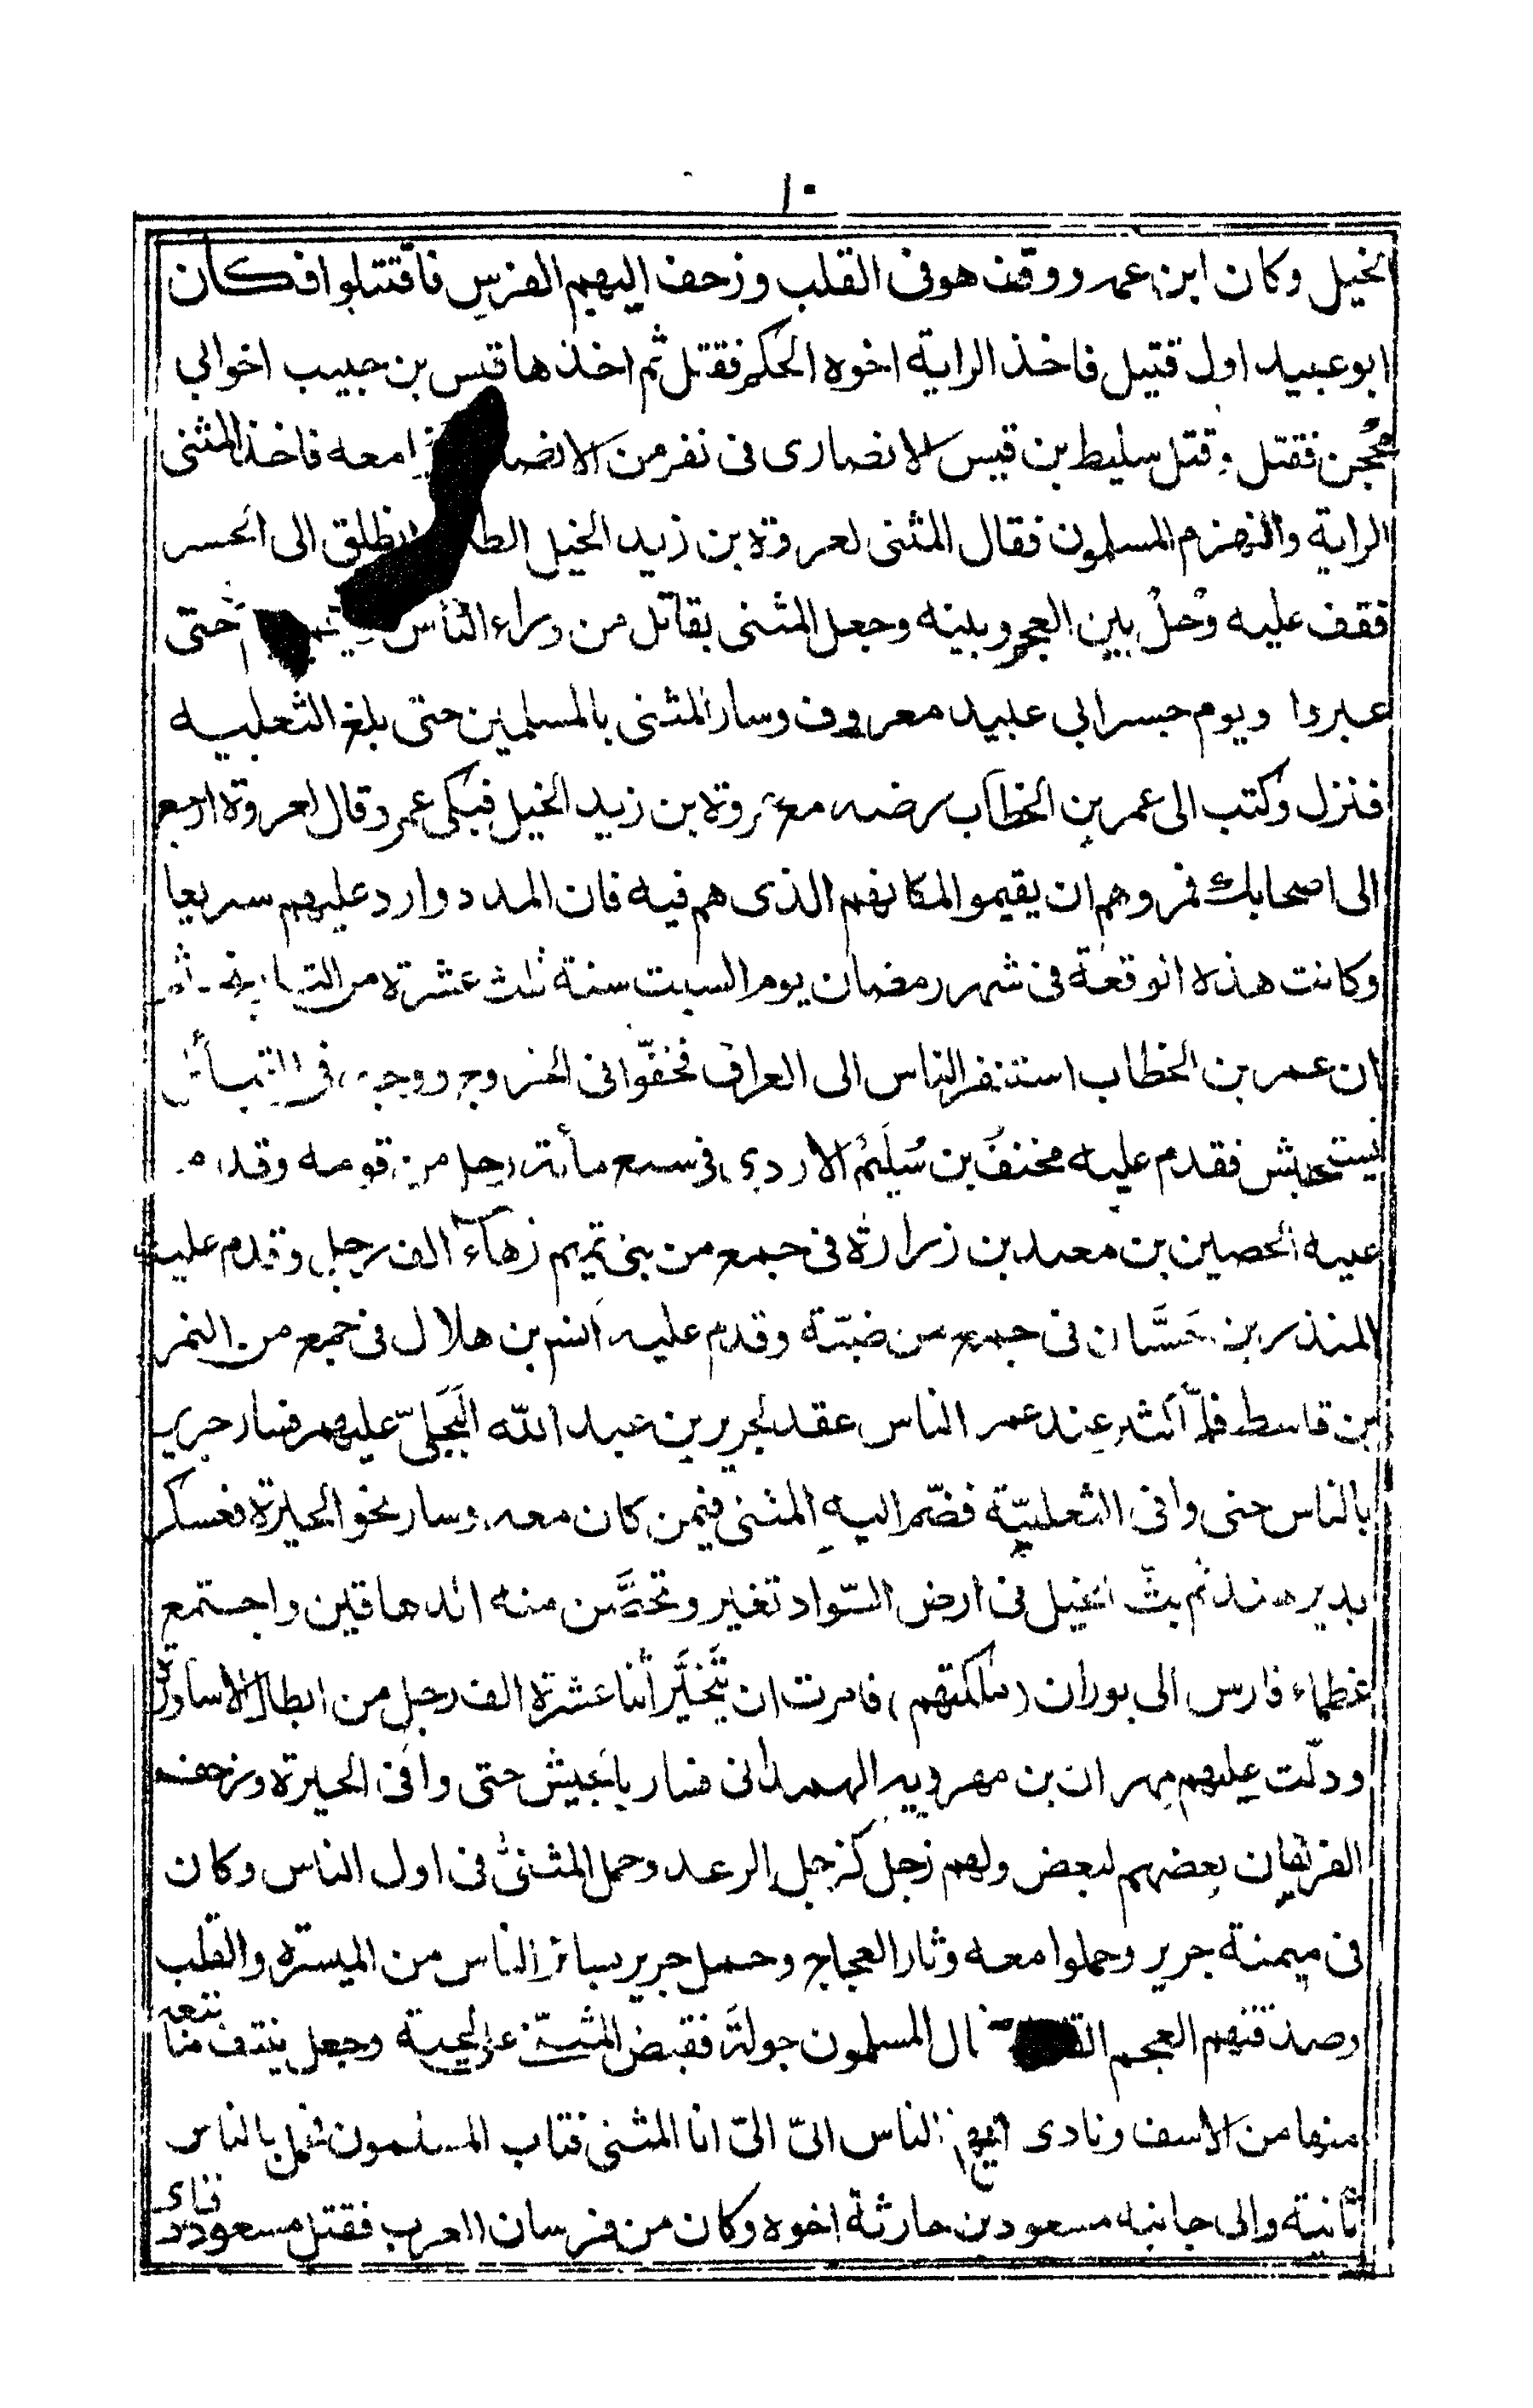 ١٠
الخيل وكان ابن عمر ووقف هو فى القلب وزحف اليهم الفرس فاقتتلوا فكان
ابو عبيد اول قتيل فاخذ الراية اخوه الحكم فقتل ثم اخذها قيس بن حبيب اخو ابي
محجن فقتل وقتل سليط بن قيس الانصارى فى نفر من الانصار معه فاخذ المثنى
الراية وانهزم المسلمون فقال المثنى لعروة بن زيد الخيل انطلق الى الجسر
فقف عليه وحل بين العجم وبينه وجعل المثنى يقاتل من وراء الناس حتى
عبروا ويوم جسر ابي عبيد معروف وسار المثنى بالمسلمين حتى بلغ الثعلبيه
فنزل وكتب الى عمر بن الخطاب رضه مع عروة بن زيد الخيل فبكى عمر وقال لعروة ارجع
الى اصحابك فمروهم ان يقيموا لمكانهم الذى هم فيه فان المدد وارد عليهم سريعا
وكانت هذه الوقعة فى شهر رمضان يوم السبت سنة ثلث عشرة من التاريخ ثم
ان عمر بن الخطاب استنفر الناس الى العراق فخفّوا فى الخروج ووجه فى القبائل
يستجيش فقدم عليه مخنف بن سُليم الازدي فى سبع مأته رجل من قومه وقدم
عليه الحصين بن معبد بن زرارة فى جمع من بنى تميم زهآء الف رجل وقدم عليه
المنذر بن حَسَّان فى جمع من ضبّة وقدم عليه انس بن هلال فى جمع من النمر
بن قاسط فلمّا كثر عند عمر الناس عقد لجرير بن عبد الله البَجَلىّ عليهم فسار جرير
بالناس حتى وافى الثعلبيّة فضمّ اليه المثنى فيمن كان معه وسار نحو الحيرة فعسكر
بدير هند ثم بثّ الخيل فى ارض السّواد تغير وتحصَّن منه الدهاقين واجتمع
عظماء فارس الى بوران (ملكتهم) فامرت ان يَتَخَيَّر اثنا عشرة الف رجل من ابطال الاساورة
وولّت عليهم مهران بن مهرويه الهمدانى فسار بالجيش حتى وافى الحيرة وزحف
الفريقان بعضهم لبعض ولهم زجل كزجل الرعد وحمل المثنىٰ فى اول الناس وكان
فى ميمنة جرير وحملوا معه وثار العجاج وحمل جرير بسائر الناس من الميسرة والقلب
وصدقتهم العجم فجال المسلمون جولة فقبض المثنى على لحيته وجعل ينتف ما تتعه
منها من الاسف ونادى ايها الناس الىّ الىّ انا المثنى فتاب المسلمون فحمل بالناس
ثانية والى جانبه مسعود بن حارثة اخوه وكان من فرسان العرب فقتل مسعود